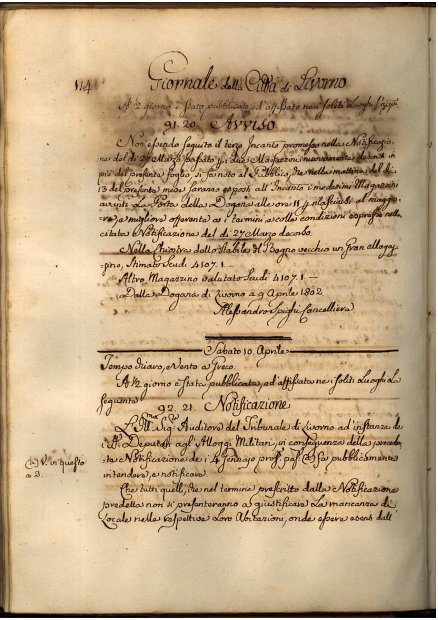 114
Giornale della Città di Livorno
A' 9 giorno è stato pubblicato, ed affissato nei soliti Luoghi
91. 20. Avviso
Non essendo seguito il terzo Incanto promesso nella Notificazio=
ne del dì 27 Marzo passato
piè del presente foglio, si fa noto al Pubblico, che nella mattina del dì
13 del presente mese saranno esposti all'Incanto i medesimi Magazzini
avanti la Porta della Dogana alle ore 11, e rilasciati al maggio=
re, e migliore offerente ai termini, e colle condizioni espresse nella
citata Notificazione del dì 27 Marzo decorso.
Nella dello Stabile del Bagno vecchio un Gran
Stimato Scudi 4107.1
Altro Magazzino valutato Scudi 4107.1 —
Dalla Dogana di Livorno a 9 Aprile 1802
Alessandro Cancelliere
Sabato 10. Aprile
Tempo chiaro, Vento a Greco.
A' giorno è stata pubblicata, ed affissata nei soliti Luoghi la
seguente
92. 21. Notificazione
L'Ill.mo Sig.re Auditore del Tribunale di Livorno ad instanza de
SS.i Deputati agli Alloggi Militari, in conseguenza della preceden=
te Notificazione de i 4 Gennajo pass.o (a) fa pubblicamente
intendere, e notificare
(a) V. in questo
a 3.
Che tutti quelli, che nel termine prescritto dalla Notificazione
predetta non si presenteranno a giustificare la mancanza di
Locale nelle rispettive Loro Abitazioni, onde essere esenti dall'